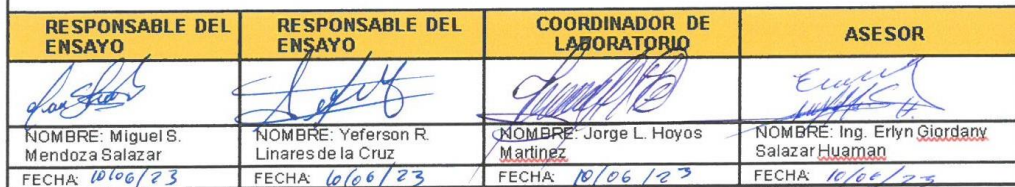 RESPONSABLE DEL
ENSAYO
RESPONSABLE DEL
ENSAYO
COORDINADOR DE
LABORATORIO
ASESOR
NOMBRE: Miguel S.
Mendoza Salazar
NOMBRE: Yeferson R.
Linares de la Cruz
NOMBRE: Jorge L. Hoyos
Martinez
NOMBRE: Ing. Erlyn Giordany
Salazar Huaman
FECHA: 10/06/23
FECHA: 10/06/23
FECHA: 10/06/23
FECHA: 10/06/23